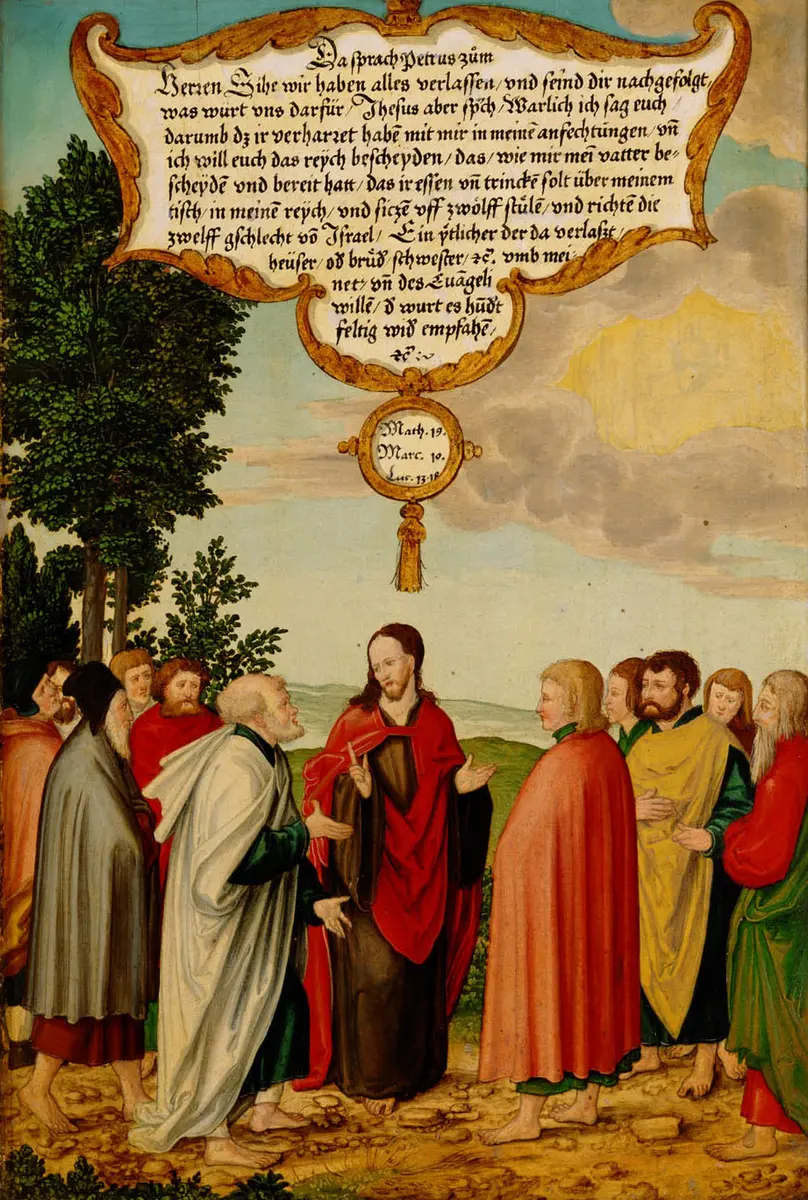 Da sprach Petrus zům
Herren Sihe wir haben alles verlassen / vnd seind dir nachgefolgt,
was würt vns darfür / Jhesus aber sp̃ch / Warlich ich sag euch /
darumb dz ir verharret habẽ mit mir in meinẽ anfechtungen / vñ
ich will euch das reych bescheyden / das / wie mir meĩ vatter be⸗
scheydẽ vnd bereit hatt / das ir essen vñ trinckẽ solt über meinem
tisch / in meinẽ reych / vnd siczẽ vff zwölff stůlẽ / vnd richtẽ die
zwelff gschlecht võ Israel / Ein ÿtlicher der da verlaszt /
heüser / od̃ brůd̃ schwester / ꝛc̃. vmb mei⸗
net / vñ des Euãgeli
willẽ / d̃ wurt es hũd̃t
feltig wid̃ empfahẽ /
ꝛc̃
Math. 19.
Marc. 10.
Luc. 13. 18